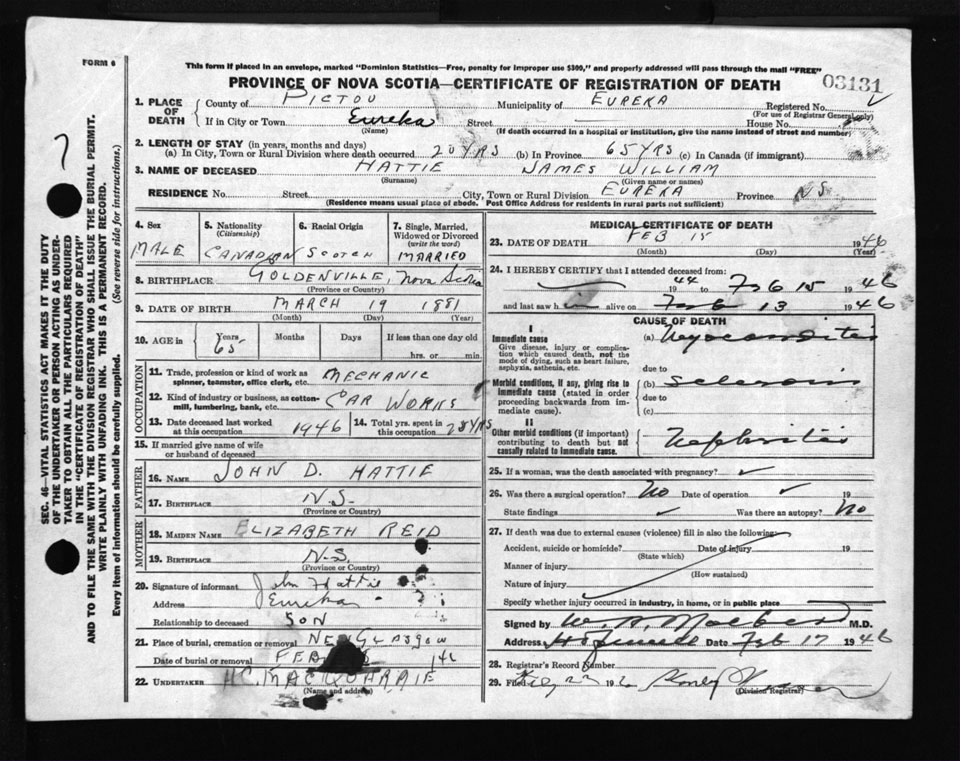 FORM 6
This form if placed in an envelope, marked "Dominion Statistics—Free, penalty for improper use $300," and properly addressed will pass through the mail "FREE"
PROVINCE OF NOVA SCOTIA—CERTIFICATE OF REGISTRATION OF DEATH
03131
SEC. 46—VITAL STATISTICS ACT MAKES IT THE DUTY
OF THE UNDERTAKER OR PERSON ACTING AS UNDERTAKER TO OBTAIN ALL THE PARTICULARS REQUIRED
IN THE "CERTIFICATE OF REGISTRATION OF DEATH"
AND TO FILE THE SAME WITH THE DIVISION REGISTRAR WHO SHALL ISSUE THE BURIAL PERMIT.
WRITE PLAINLY WITH UNFADING INK. THIS IS A PERMANENT RECORD.
Every item of information should be carefully supplied. (See reverse side for instructions.)
1. PLACE OF DEATH County of PICTOU Municipality of EUREKA Registered No.
(For use of Registrar General only)
If in City or Town Eureka Street House No.
(Name) (If death occurred in a hospital or institution, give the name instead of street and number)
2. LENGTH OF STAY (in years, months and days)
(a) In City, Town or Rural Division where death occurred 20 YRS (b) In Province 65 YRS (c) In Canada (if immigrant)
3. NAME OF DECEASED HATTIE JAMES WILLIAM
(Surname) (Given name or names)
RESIDENCE No. Street City, Town or Rural Division EUREKA Province N.S.
(Residence means usual place of abode. Post Office Address for residents in rural parts not sufficient)
4. Sex MALE
5. Nationality (Citizenship) CANADIAN
6. Racial Origin SCOTCH
7. Single, Married, Widowed or Divorced (write the word) MARRIED
8. BIRTHPLACE GOLDENVILLE, Nova Scotia
(Province or Country)
9. DATE OF BIRTH MARCH 19 1881
(Month) (Day) (Year)
10. AGE in Years 65 Months Days If less than one day old
hrs. or min.
OCCUPATION
11. Trade, profession or kind of work as spinner, teamster, office clerk, etc. MECHANIC
12. Kind of industry or business, as cotton-mill, lumbering, bank, etc. CAR WORKS
13. Date deceased last worked at this occupation 1946
14. Total yrs. spent in this occupation YRS
15. If married give name of wife or husband of deceased
FATHER
16. NAME JOHN D. HATTIE
17. BIRTHPLACE N.S.
(Province or Country)
MOTHER
18. MAIDEN NAME ELIZABETH REID
19. BIRTHPLACE N.S.
(Province or Country)
20. Signature of informant John Hattie
Address Eureka
Relationship to deceased SON
21. Place of burial, cremation or removal NEW GLASGOW
Date of burial or removal FEB
22. UNDERTAKER H.C. MACQUARRIE
(Name and address)
MEDICAL CERTIFICATE OF DEATH
23. DATE OF DEATH FEB 15 1946
(Month) (Day) (Year)
24. I HEREBY CERTIFY that I attended deceased from:
1944 to Feb 15 1946
and last saw him alive on Feb 13 1946
CAUSE OF DEATH
I
Immediate cause
Give disease, injury or complication which caused death, not the mode of dying, such as heart failure, asphyxia, asthenia, etc.
(a) Myocarditis
due to
Morbid conditions, if any, giving rise to immediate cause (stated in order proceeding backwards from immediate cause).
(b) sclerosis
due to
(c)
II
Other morbid conditions (if important) contributing to death but not causally related to immediate cause.
Nephritis
25. If a woman, was the death associated with pregnancy?
26. Was there a surgical operation? No Date of operation 19
State findings Was there an autopsy? No
27. If death was due to external causes (violence) fill in also the following:
Accident, suicide or homicide? Date of injury 19
(State which)
Manner of injury
(How sustained)
Nature of injury
Specify whether injury occurred in industry, in home, or in public place
Signed by M.D.
Address Date Feb 17 1946
28. Registrar's Record Number
29. Filed 19
(Division Registrar)